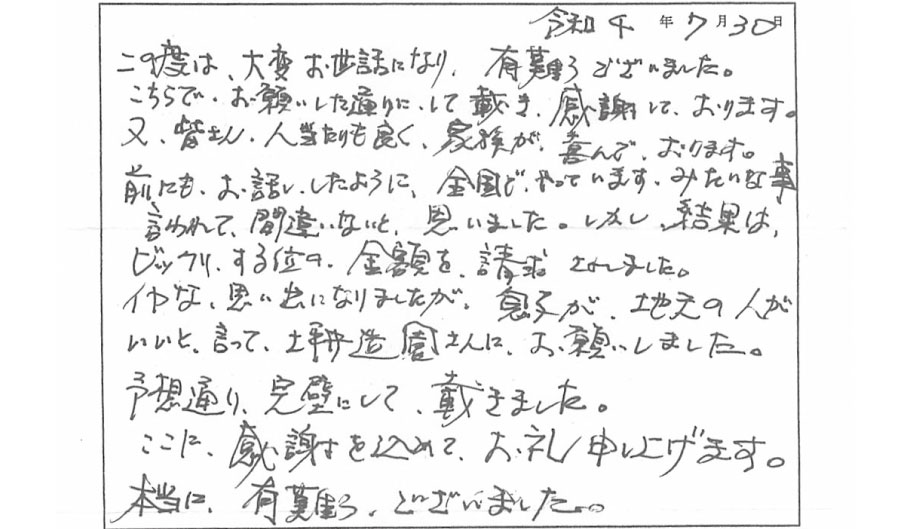 令和4年7月30日
この度は、大変お世話になり、有難うございました。
こちらで、お願いした通りに、して戴き、感謝して、おります。
又、皆さん、人当たりも良く、家族が、喜んで、おります。
前にも、お話し、したように、全国で、やっています、みたいな事
言われて、間違いないと、思いました。しかし、結果は、
ビックリ、する位の、金額を、請求されました。
イヤな、思い出になりましたが、息子が、地元の人が
いいと、言って、土井造園さんに、お願いしました。
予想通り、完璧にして、戴きました。
ここに、感謝を込めて、お礼申し上げます。
本当に、有難う、ございました。